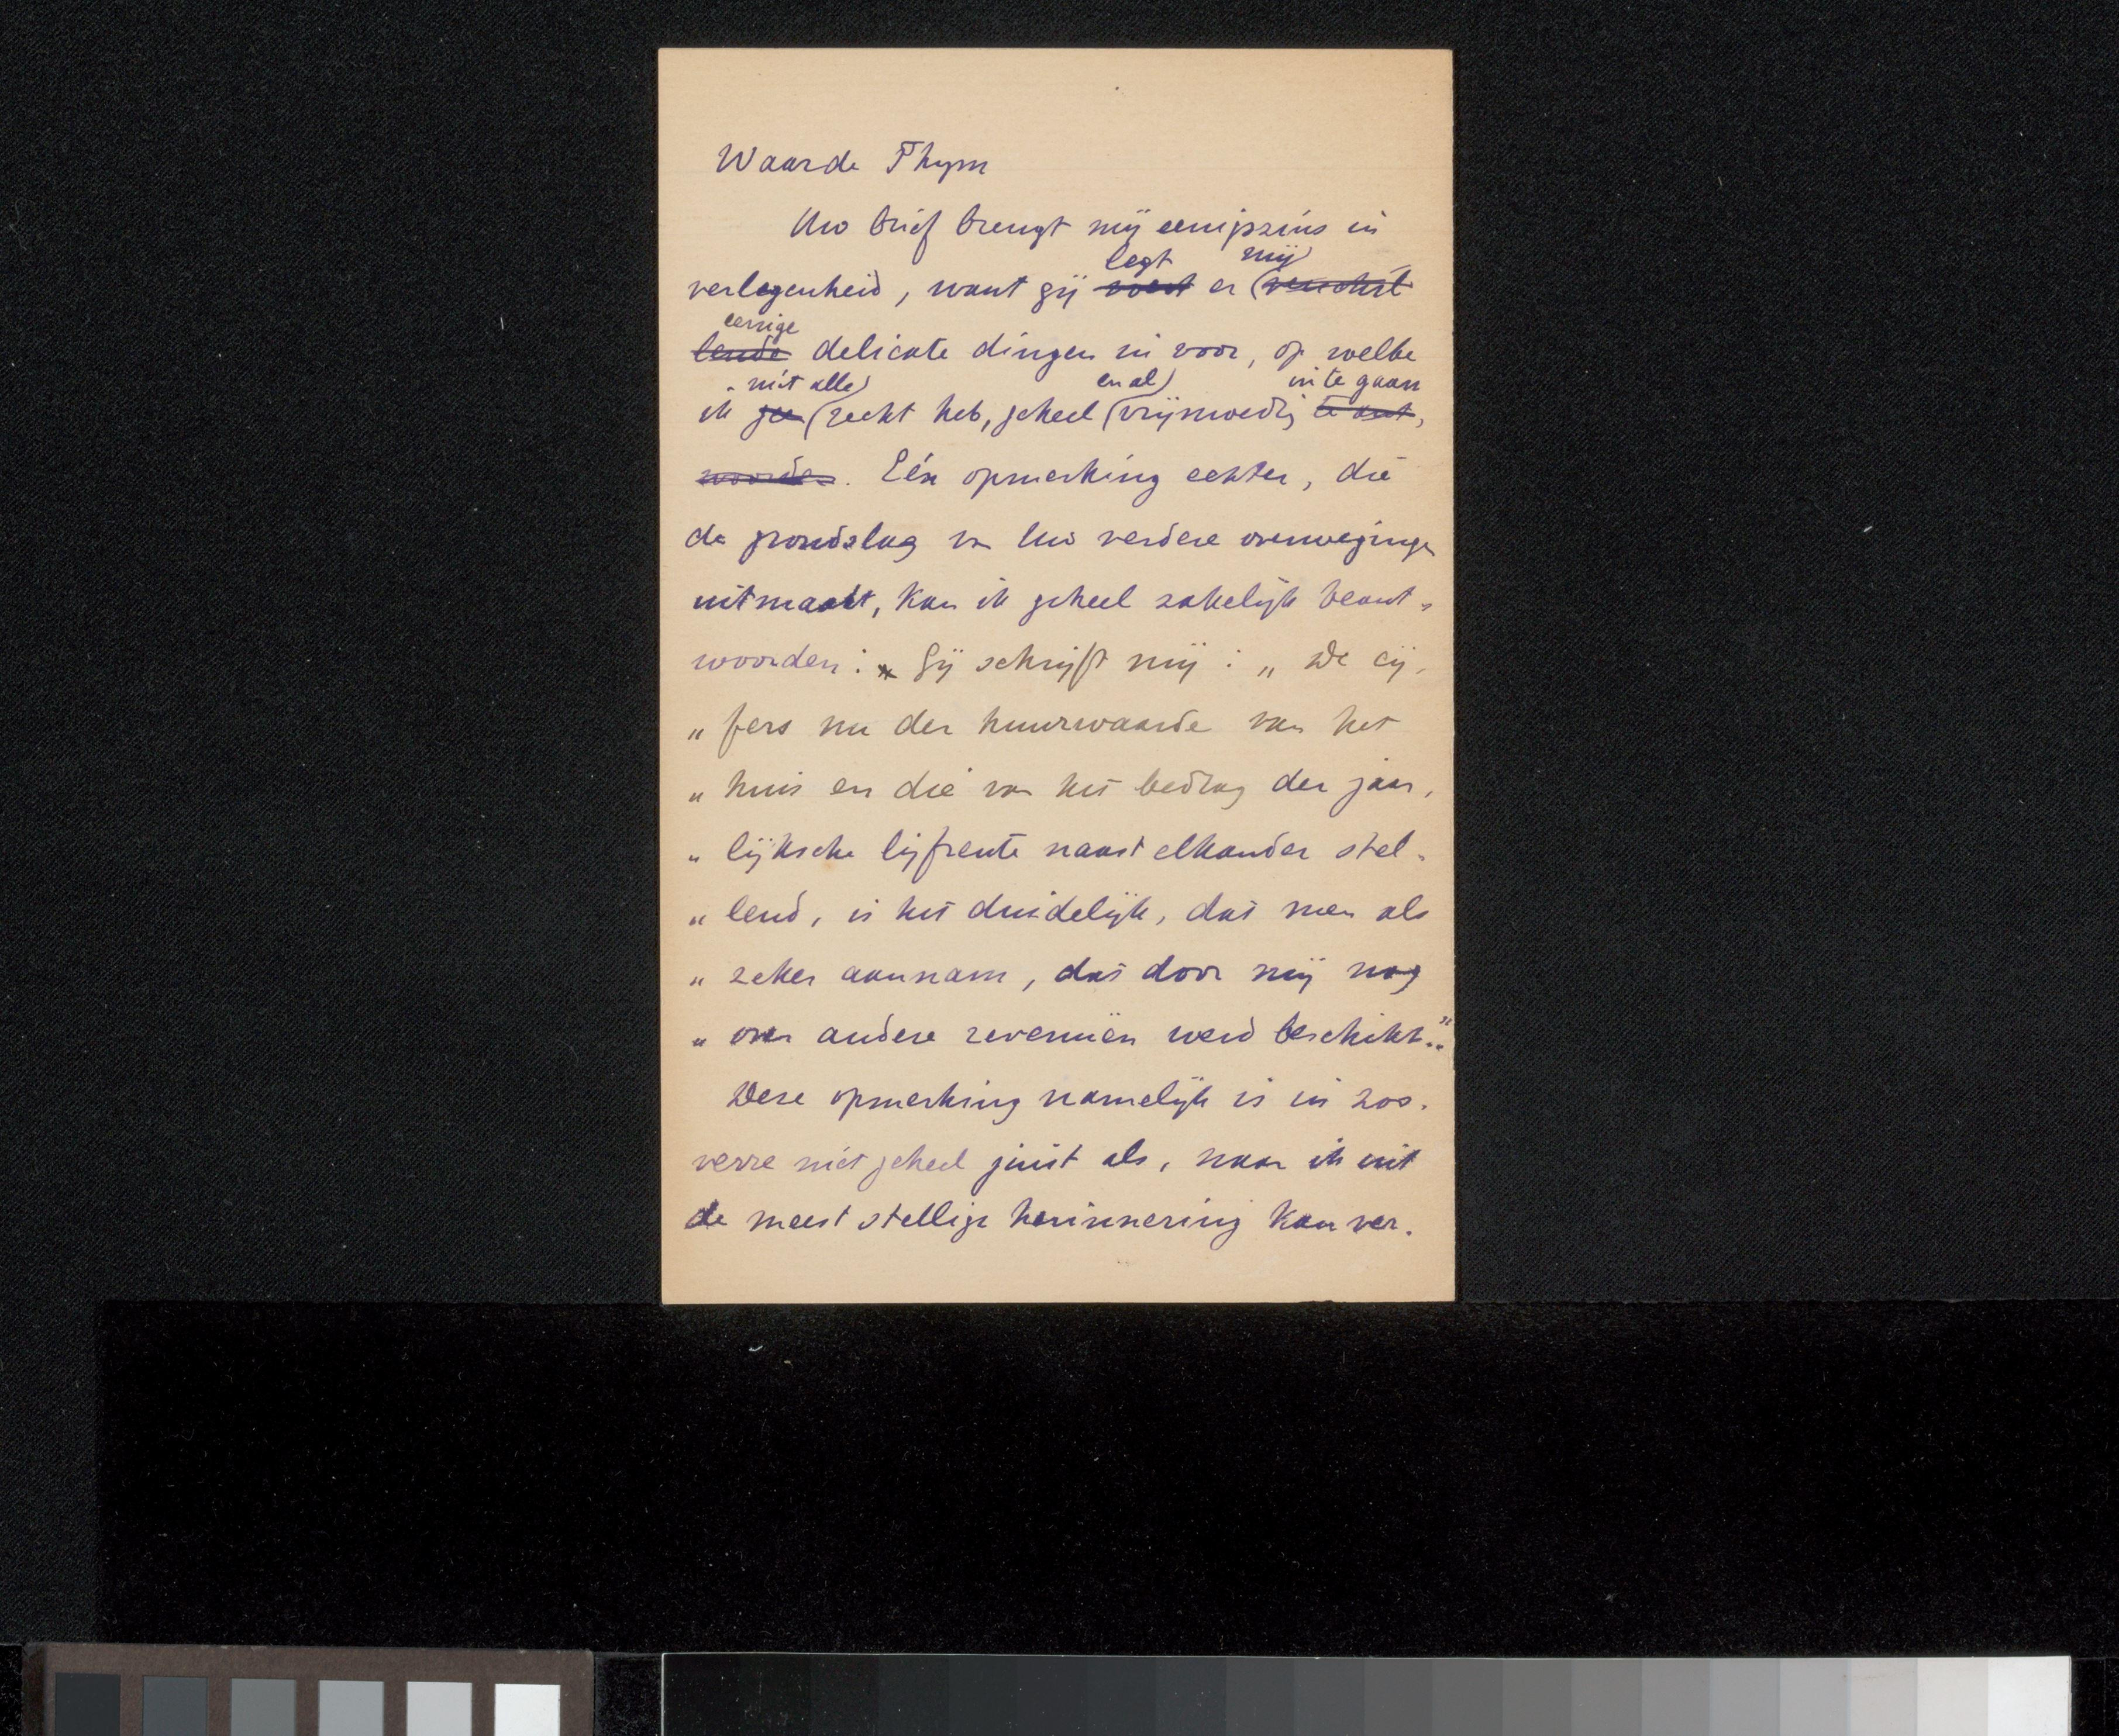 Waarde Thym
Uw brief brengt mij eenigszins in
legt mij
verlegenheid, want gij er (verschil
eenige
lende delicate dingen in voor, op welke
niet alle) en al) in te gaan
ik (recht heb, geheel (vrijmoedig te ant-
woorden. Eén opmerking echter, die
de grondslag van Uw verdere overwegingen
uitmaakt, kan ik geheel zakelijk beant-
woorden: Gij schrijft mij: „De cij-
„fers nu der huurwaarde van het
„huis en die van het bedrag der jaar-
„lijksche lijfrente naast elkander stel-
„lend, is het duidelijk, dat men als
„zeker aannam, dat door mij nog
„over andere revenuën werd beschikt."
Deze opmerking namelijk is in zoo-
verre niet geheel juist als, naar ik uit
de meest stellige herinnering kan ver-